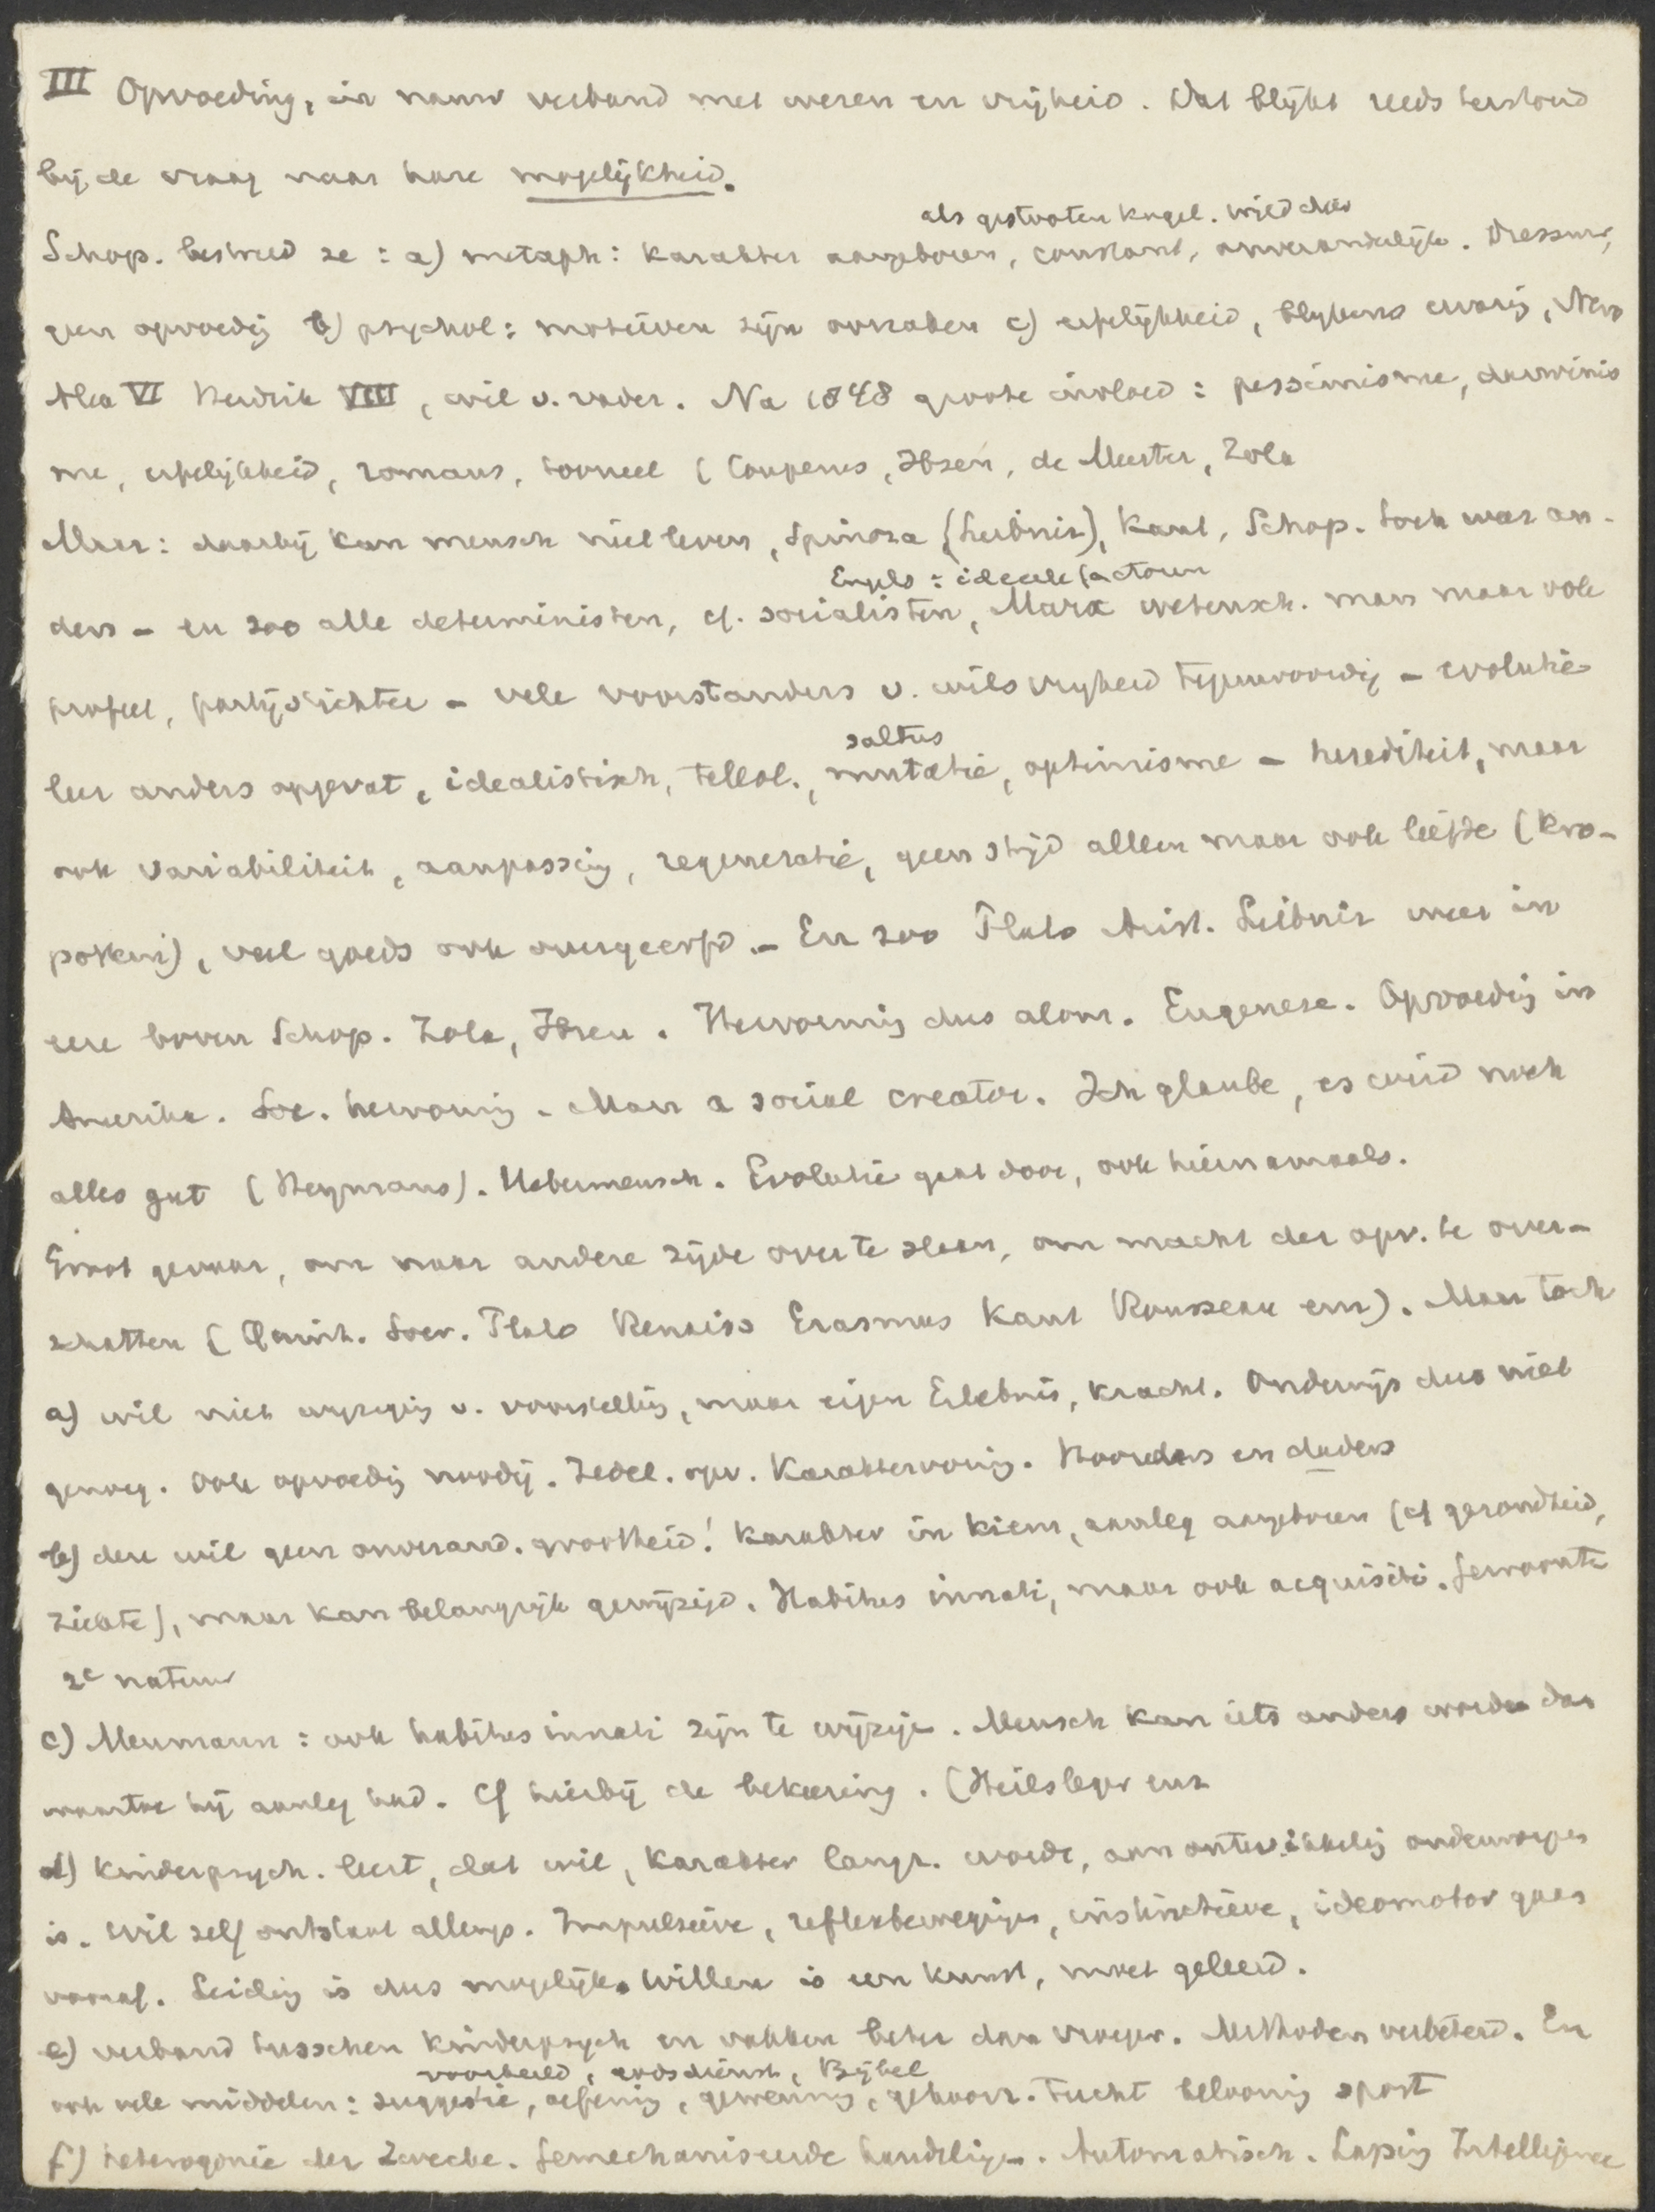 III Opvoeding, in nauw verband met wezen en vrijheid. Dat blijkt reeds terstond
bij de vraag naar hare mogelijkheid.
als gestooten kogel. wild dier
Schop. bestreed ze: a) metaph: karakter aangeboren, constant, onveranderlijk. Dressuur,
geen opvoedig b) psychol: motieven zijn oorzaken c) erfelijkheid, blijkens ervarig, Nero
Alex VI Hendrik VIII, wil v. vader. Na 1848 groote invloed: pessimisme, darwinis
me, erfelijkheid, romans, tooneel (Couperus, Ibsen, de Meester, Zola
Maar: daarbij kan mensch niet leven, Spinoza (Leibniz), Kant, Schop. toch weer an-
Engels: ideeele factoren
ders - en zoo alle deterministen, cf. socialisten, Marx wetensch. man maar ook
profeet, partijstichter - vele voorstanders v. wilsvrijheid tegenwoordig - evolutie
saltus
leer anders opgevat, idealistisch, teleol., mutatie, optimisme - herediteit, maar
ook variabiliteit, aanpassig, regeneratie, geen strijd alleen maar ook liefde (Kro-
potkin), veel goeds ook overgeerfd. - En zoo Plato Arist. Leibniz weer in
eere boven Schop. Zola, Ibsen. Hervormig dus alom. Eugenese. Opvoedig in
Amerika. Soc. hervormig. Man a social creator. Ich glaube, es wird noch
alles gut (Heymans). Uebermensch. Evolutie gaat door, ook hiernamaals.
Groot gevaar, om naar andere zijde over te slaan, om macht der opv. te over-
schatten (Quint. Socr. Plato Renaiss Erasmus Kant Rousseau enz). Maar toch
a) wil niet wijzigig v. voorstellig, maar eigen Erlebnis, kracht. Onderwijs dus niet
genoeg. Ook opvoedig noodig. Zedel. opv. Karaktervormig. Hoorders en daders
b) deze wil geen onverand. grootheid! Karakter in kiem, aanleg aangeboren (cf gezondheid,
ziekte), maar kan belangrijk gewijzigd. Habitus innati, maar ook acquisiti. Gewoonte
2e natuur
c) Meumann: ook habitus innati zijn te wijzige. Mensch kan iets anders worden dan
waartoe hij aanleg had. Cf hierbij de bekeering. (Heilsleger enz
d) Kinderpsych. leert, dat wil, karakter langz. wordt, aan ontwikkelig onderworpen
is. Wil zelf ontstaat allengs. Impulsieve, reflexbewegigen, instinctieve, ideomotor gaan
vooraf. Leidig is dus mogelijk. Willen is een kunst, moet geleerd.
e) verband tusschen kinderpsych en vakken beter dan vroeger. Methoden verbeterd. En
voorbeeld, godsdienst, Bijbel
ook vele middelen: suggestie, oefenig, gewennig, gehoorz. tucht beloonig sport
f) heterogonie der Zwecke. Gemechaniseerde handelige. Automatisch. Intelligence